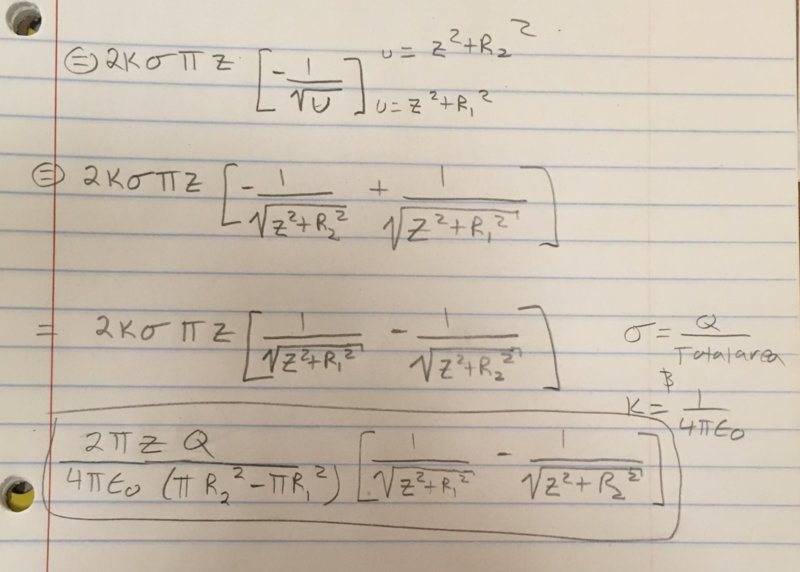 ⊜ 2Kσπz [-1/√U] U = z²+R₂² U = z²+R₁²
⊜ 2Kσπz [-1/√(z²+R₂²) + 1/√(z²+R₁²)]
= 2Kσπz [1/√(z²+R₁²) - 1/√(z²+R₂²)]
σ = Q/Total area
&
K = 1/4πε₀
2πzQ/4πε₀(πR₂²-πR₁²) [1/√(z²+R₁²) - 1/√(z²+R₂²)]